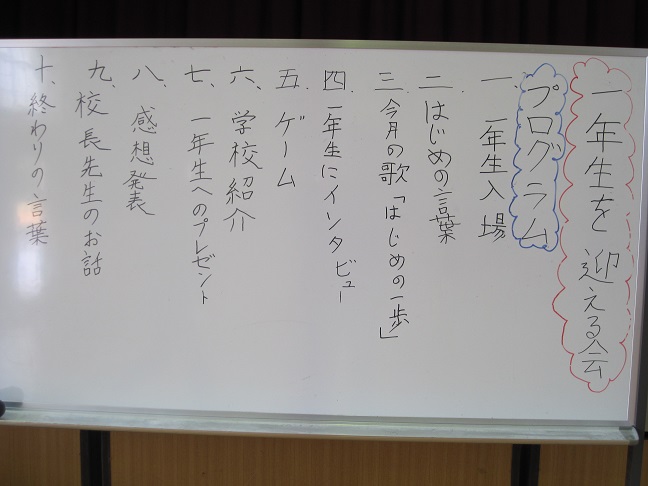 一年生を迎える会
プログラム
一、一年生入場
二、はじめの言葉
三、今月の歌「はじめの一歩」
四、一年生にインタビュー
五、ゲーム
六、学校紹介
七、一年生へのプレゼント
八、感想発表
九、校長先生のお話
十、終わりの言葉